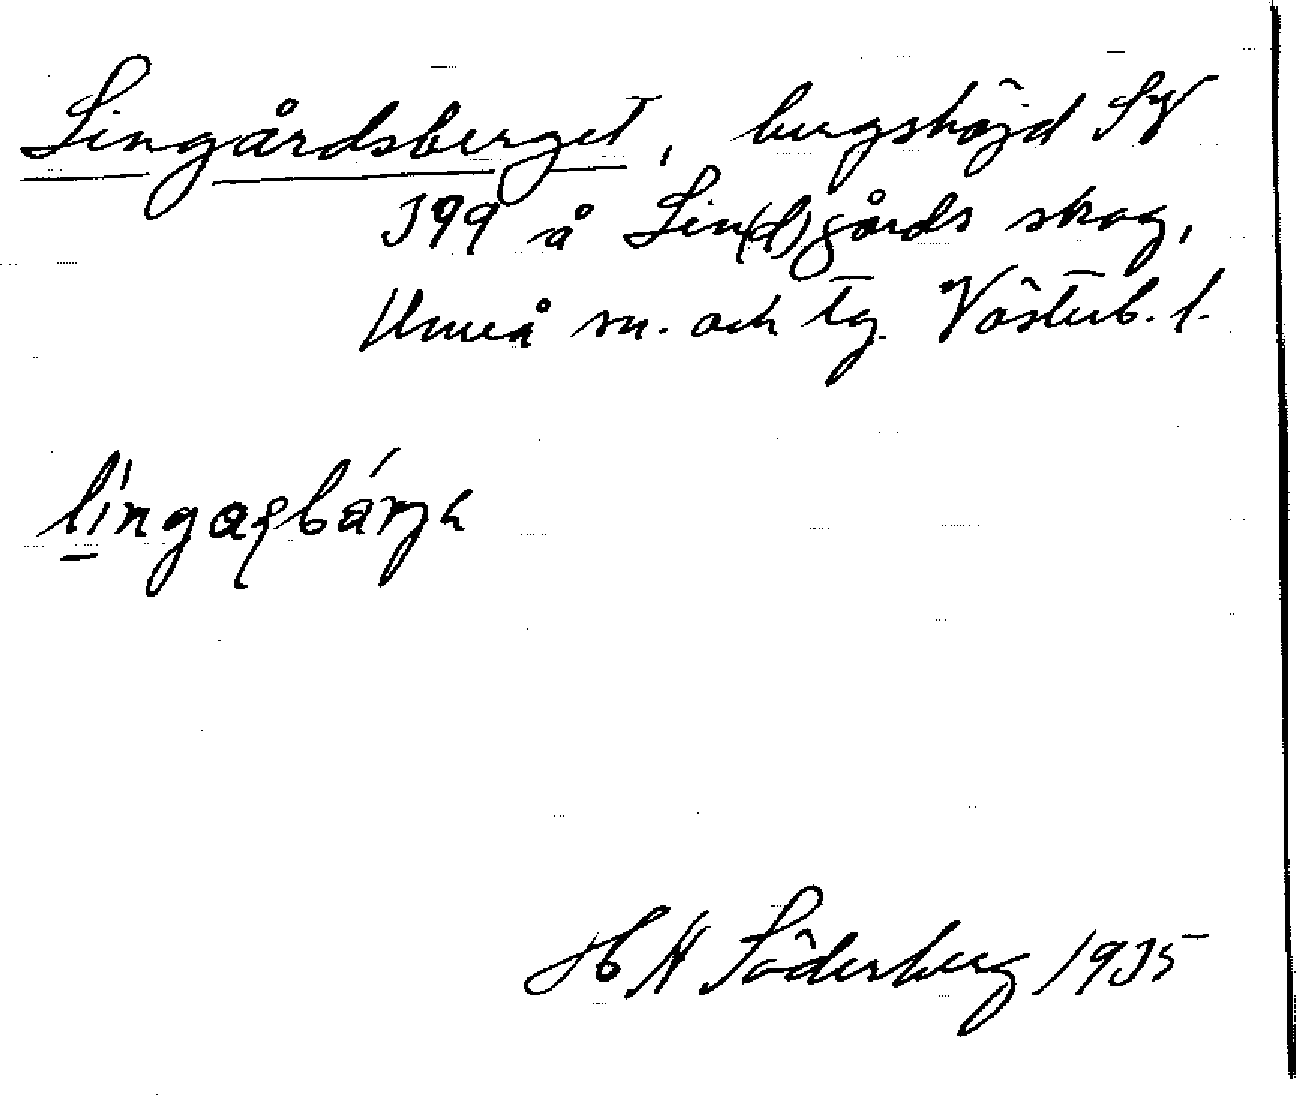 Lingårdsberget, bergshöjd SV
399 å Lin(d)gårds skog,
Umeå sn. och tg. Västerb. l.
H N Söderberg 1935